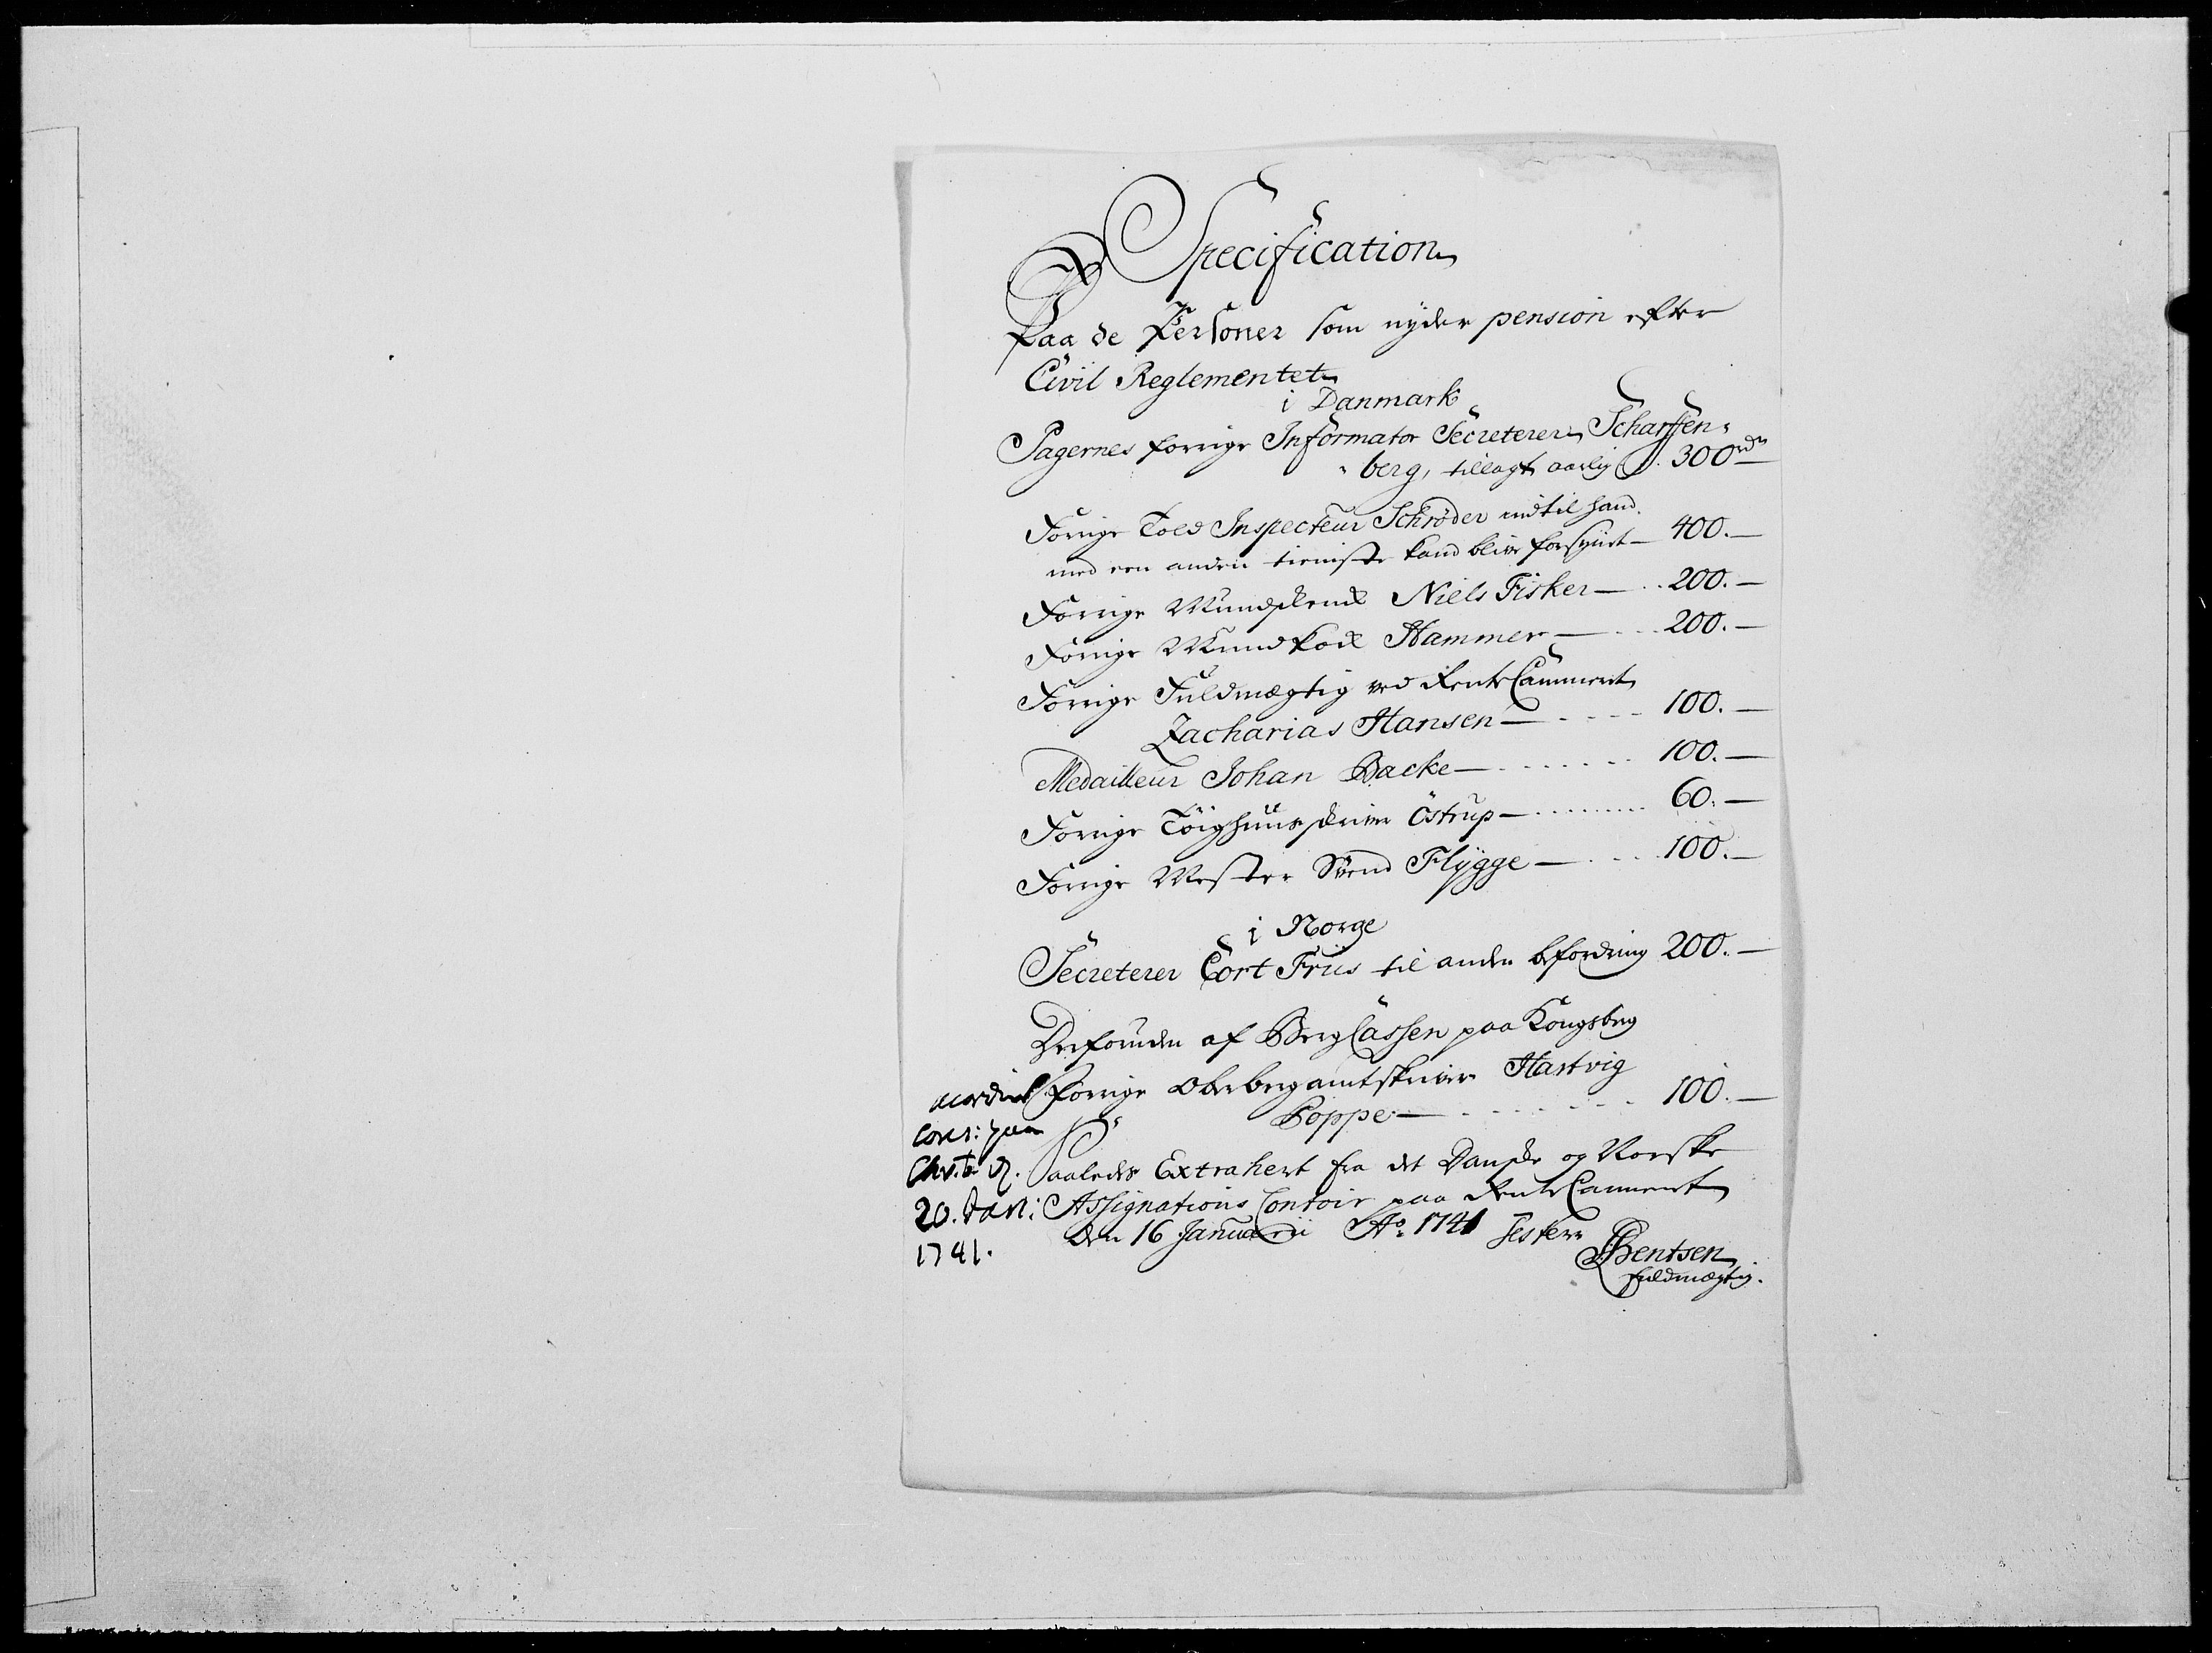 Specification
Paa de Personer som nyder pension efter
Civil Reglementet
i Danmark
Pagernes forrige Informator Secreterer Scharffen„
„berg, tillagt aarlig . 300 rd
Forrige Told Inspecteur Schrøder indtil hand
med een anden tieniste kand blive forsynet — 400.—
Forrige Mundskenk Niels Fisker — . . 200.—
Forrige Mundkok Hammer — . . . 200.—
Forrige Fuldmægtig ved RenteCammeret
Zacharias Hansen — . . . . 100.—
Medailleur Johan Backe — . . . . . . . 100.—
Forrige Töighuusskriver Östrup — . . . . . . 60.—
Forrige Mester Svend Flygge — . . . 100.—
i Norge
Secreterer Cort Friis til anden befordring 200.—
Desforuden af BergCassen paa Kongsberg
forrige Oberbergamtskriver Hartvig
Poppe — . . . . . . . 100.—
Saaledes Extrahert fra det Danske og Norske
Assignations Contoir paa RenteCammeret
den 16 Januarii Ao. 1741 Tester
Bentsen
fuldmægtig.
paa
20. Jan:
1741.